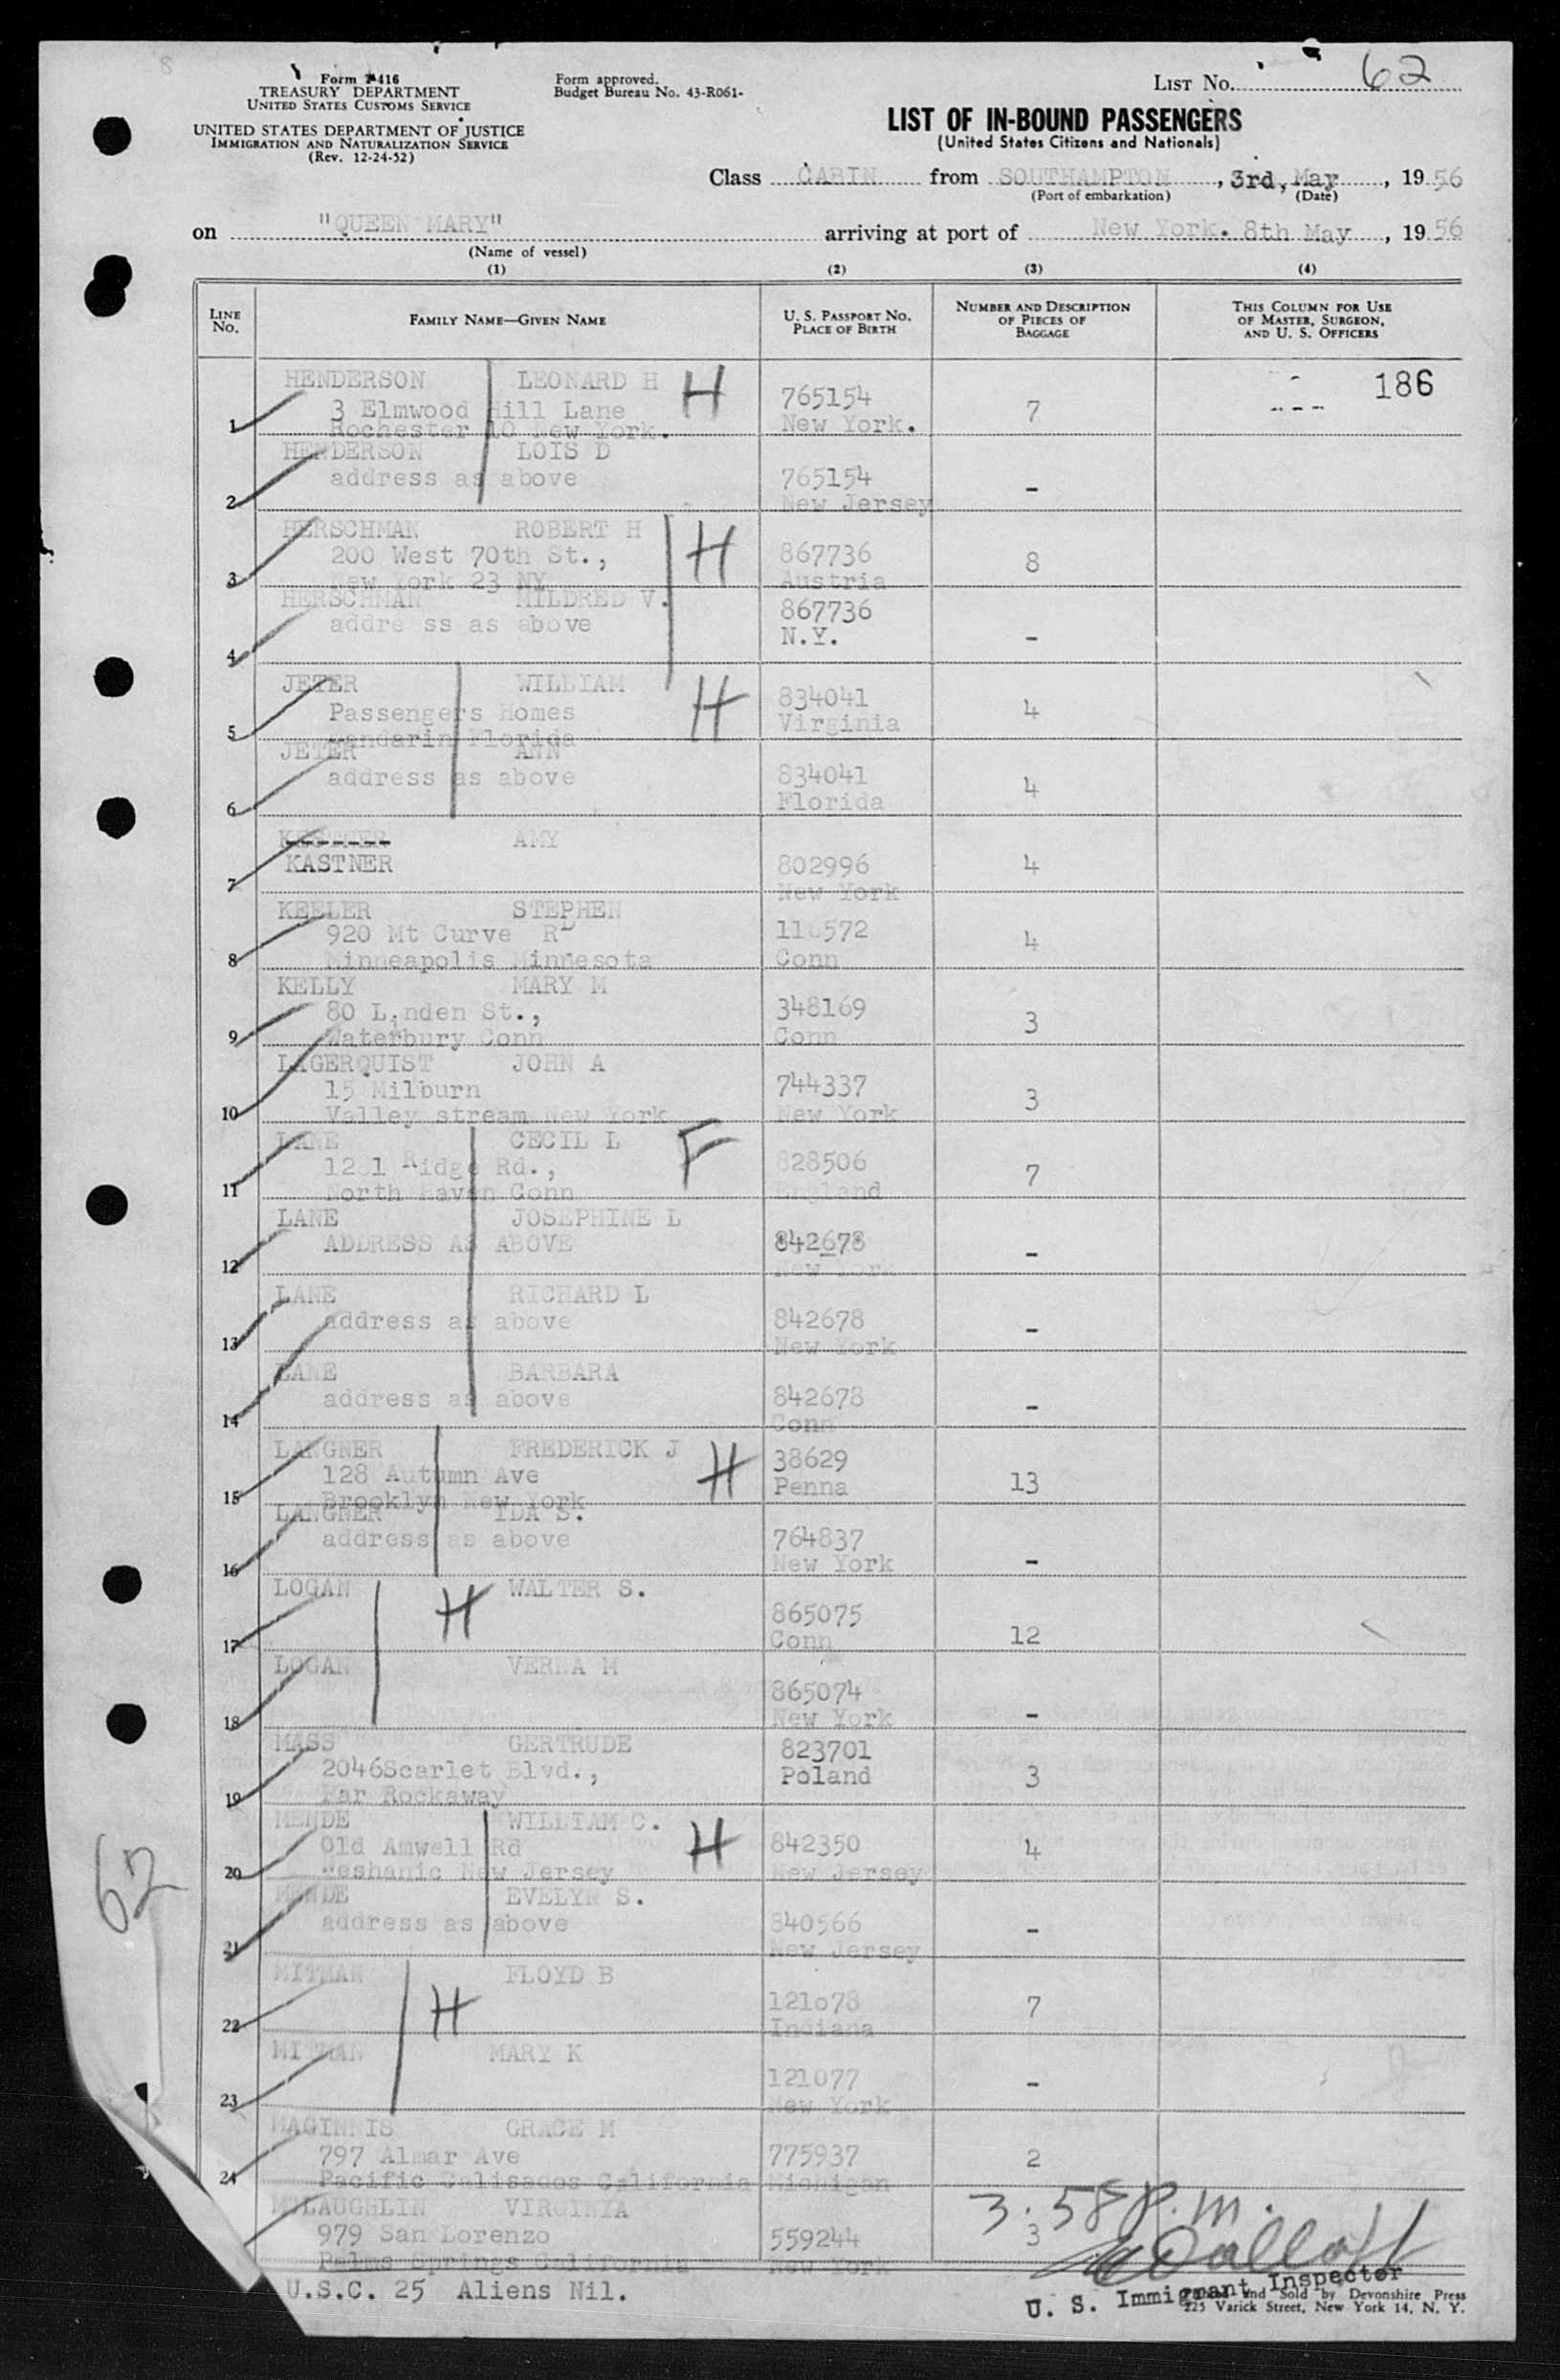 Form I-416
TREASURY DEPARTMENT
UNITED STATES CUSTOMS SERVICE
UNITED STATES DEPARTMENT OF JUSTICE
IMMIGRATION AND NATURALIZATION SERVICE
(Rev. 12-24-52)
Form approved.
Budget Bureau No. 43-R061-
LIST NO. 62
LIST OF IN-BOUND PASSENGERS
(United States Citizens and Nationals)
Class CABIN from SOUTHAMPTON, 3rd, May, 1956
(Port of embarkation) (Date)
on "QUEEN MARY" arriving at port of New York. 8th May, 1956
(Name of vessel)
(1) (2) (3) (4)
LINE NO. FAMILY NAME—GIVEN NAME U. S. PASSPORT NO. PLACE OF BIRTH NUMBER AND DESCRIPTION OF PIECES OF BAGGAGE THIS COLUMN FOR USE OF MASTER, SURGEON, AND U. S. OFFICERS
186
1 HENDERSON LEONARD H H 765154 7
3 Elmwood Hill Lane New York.
Rochester 10 New York.
2 HENDERSON LOIS D 765154 -
address as above New Jersey
3 HERSCHMAN ROBERT H H 867736 8
200 West 70th St., Austria
New York 23 NY
4 HERSCHMAN MILDRED V. 867736 -
addre ss as above N.Y.
5 JETER WILLIAM H 834041 4
Passengers Homes Virginia
Mandarin Florida
6 JETER ANN 834041 4
address as above Florida
7 KESTNER AMY 802996 4
KASTNER New York
8 KEELER STEPHEN 572 4
920 Mt Curve RD Conn
Minneapolis Minnesota
9 KELLY MARY M 348169 3
80 Linden St., Conn
Waterbury Conn
10 LAGERQUIST JOHN A 744337 3
15 Milburn New York
Valley stream New York
11 LANE CECIL L F 828506 7
Ridge Rd., England
North Haven Conn
12 LANE JOSEPHINE L 842678 -
ADDRESS AS ABOVE New York
13 LANE RICHARD L 842678 -
address as above New York
14 LANE BARBARA 842678 -
address as above Conn
15 LANGNER FREDERICK J H 38629 13
128 Autumn Ave Penna
Brooklyn New York
16 LANGNER IDA S. 764837 -
address as above New York
17 LOGAN H WALTER S. 865075 12
Conn
18 LOGAN VERNA M 865074 -
New York
19 MASS GERTRUDE 823701 3
2046Scarlet Blvd., Poland
Far Rockaway
20 MENDE WILLIAM C. H 842350 4
Old Amwell Rd New Jersey
Neshanic New Jersey
21 MENDE EVELYN S. 840566 -
address as above New Jersey
22 MITMAN H FLOYD B 121078 7
Indiana
23 MITMAN MARY K 121077 -
New York
24 MAGINNIS GRACE M 775937 2
797 Almar Ave Michigan
Pacific Calisados California
McLAUGHLIN VIRGINIA 559244 3
979 San Lorenzo New York
Palms Springs California
3.58 p.m.
U.S.C. 25 Aliens Nil.
U. S. Immigrant Inspector
and Sold by Devonshire Press
225 Varick Street, New York 14, N. Y.
62